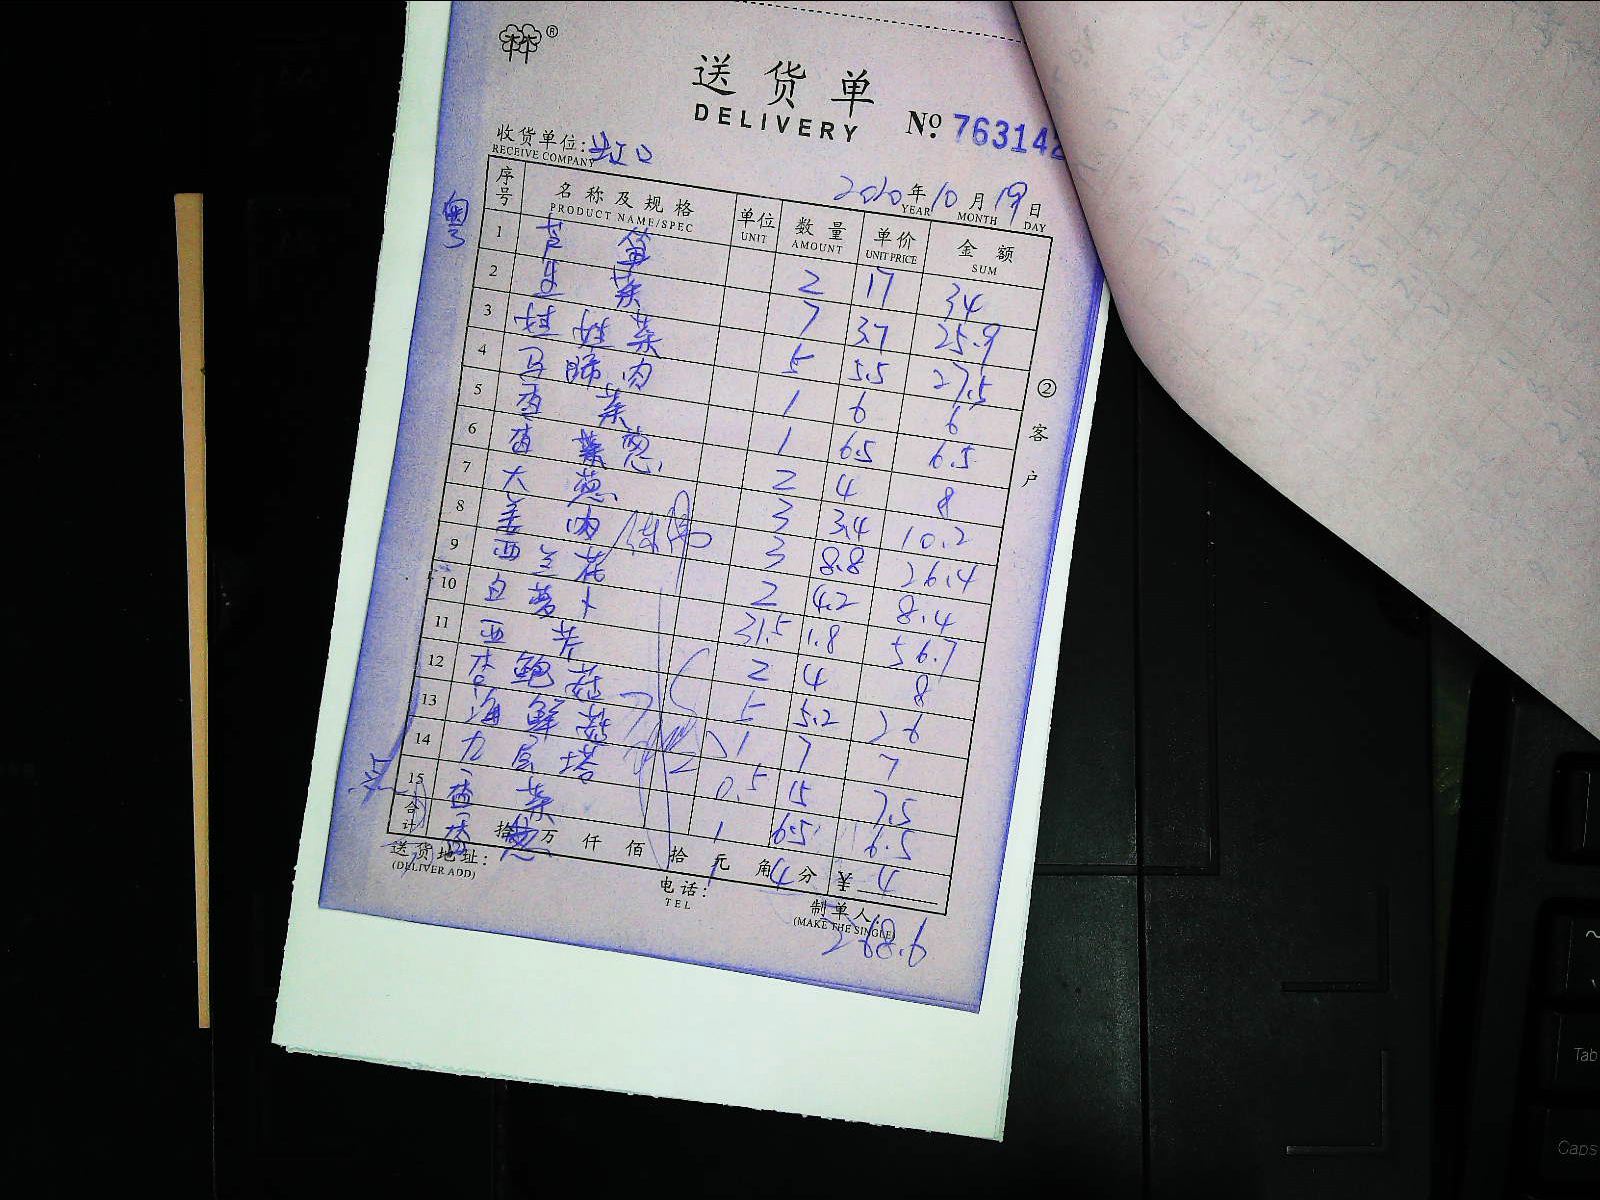 送货单
DELIVERY
No. 763142
收货单位: 虹口
RECEIVE COMPANY
2020年10月19日
YEAR MONTH DAY
序号 名称及规格 单位 数量 单价 金额
PRODUCT NAME/SPEC UNIT AMOUNT UNIT PRICE SUM
粤
1 芦笋 2 17 34
2 生菜 7 3.7 25.9
3 娃娃菜 5 5.5 27.5
4 马蹄肉 1 6 6
5 香菜 1 6.5 6.5
6 香葱 2 4 8
7 大葱 3 3.4 10.2
8 姜肉 3 8.8 26.4
9 西兰花 2 4.2 8.4
10 白萝卜 31.5 1.8 56.7
11 西芹 2 4 8
12 杏鲍菇 5 5.2 26
13 海鲜菇 1 7 7
14 九层塔 0.5 15 7.5
15 香菜 1 6.5 6.5
香葱 1 4 4
合计 拾 万 仟 佰 拾 元 角 分 ¥
送货地址:
(DELIVER ADD)
电话:
TEL
制单人:
(MAKE THE SINGLE)
268.6
②客户
Tab
Caps